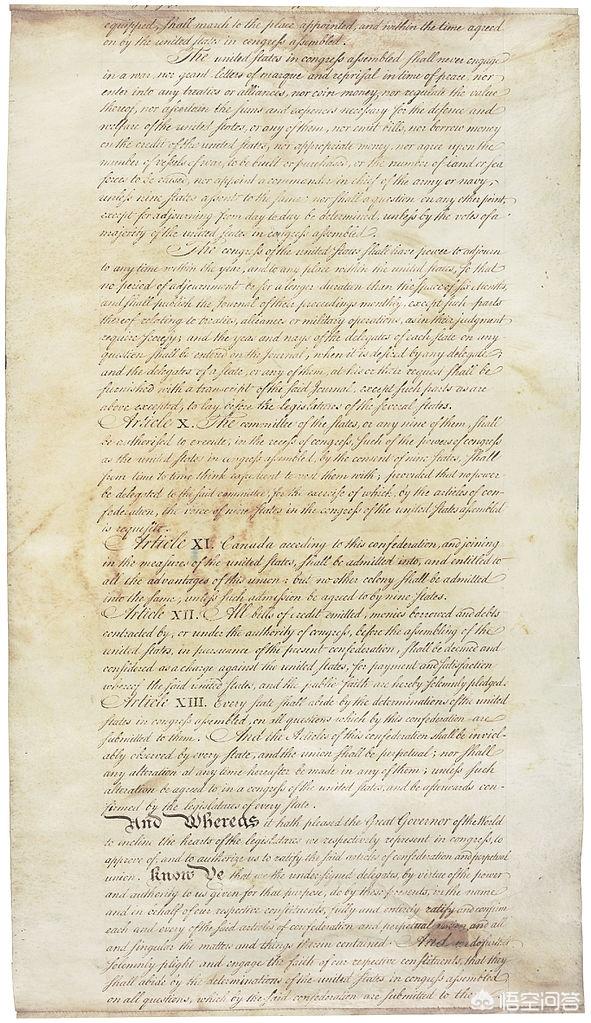 equipped, shall march to the place appointed, and within the time agreed
on by the united states in congress assembled.
The united states in congress assembled shall never engage
in a war, nor grant letters of marque and reprisal in time of peace, nor
enter into any treaties or alliances, nor coin money, nor regulate the value
thereof, nor ascertain the sums and expences necessary for the defence and
welfare of the united states, or any of them, nor emit bills, nor borrow money
on the credit of the united states, nor appropriate money, nor agree upon the
number of vessels of war, to be built or purchased, or the number of land or sea
forces to be raised, nor appoint a commander in chief of the army or navy,
unless nine states assent to the same: nor shall a question on any other point,
except for adjourning from day to day be determined, unless by the votes of a
majority of the united states in congress assembled.
The congress of the united states shall have power to adjourn
to any time within the year, and to any place within the united states, so that
no period of adjournment be for a longer duration than the space of six Months,
and shall publish the Journal of their proceedings monthly, except such parts
thereof relating to treaties, alliances or military operations, as in their judgment
require secresy; and the yeas and nays of the delegates of each state on any
question shall be entered on the Journal, when it is desired by any delegate;
and the delegates of a state, or any of them, at his or their request shall be
furnished with a transcript of the said Journal, except such parts as are
above excepted, to lay before the legislatures of the several states.
Article X. The committee of the states, or any nine of them, shall
be authorised to execute, in the recess of congress, such of the powers of congress
as the united states in congress assembled, by the consent of nine states, shall
from time to time think expedient to vest them with; provided that no power
be delegated to the said committee, for the exercise of which, by the articles of con-
federation, the voice of nine states in the congress of the united states assembled
is requisite.
Article XI. Canada acceding to this confederation, and joining
in the measures of the united states, shall be admitted into, and entitled to
all the advantages of this union: but no other colony shall be admitted
into the same, unless such admission be agreed to by nine states.
Article XII. All bills of credit emitted, monies borrowed and debts
contracted by, or under the authority of congress, before the assembling of the
united states, in pursuance of the present confederation, shall be deemed and
considered as a charge against the united states, for payment and satisfaction
whereof the said united states, and the public faith are hereby solemnly pledged.
Article XIII. Every state shall abide by the determinations of the united
states in congress assembled, on all questions which by this confederation are
submitted to them. And the Articles of this confederation shall be inviol-
ably observed by every state, and the union shall be perpetual; nor shall
any alteration at any time hereafter be made in any of them; unless such
alteration be agreed to in a congress of the united states, and be afterwards con-
firmed by the legislatures of every state.
And Whereas it hath pleased the Great Governor of the World
to incline the hearts of the legislatures we respectively represent in congress, to
approve of, and to authorize us to ratify the said articles of confederation and perpetual
union. Know Ye that we the undersigned delegates, by virtue of the power
and authority to us given for that purpose, do by these presents, in the name
and in behalf of our respective constituents, fully and entirely ratify and confirm
each and every of the said articles of confederation and perpetual union, and all
and singular the matters and things therein contained: And we do further
solemnly plight and engage the faith of our respective constituents, that they
shall abide by the determinations of the united states in congress assembled,
on all questions, which by the said confederation are submitted to them.
悟空问答